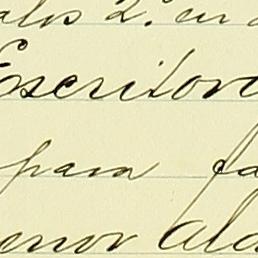 alos 2.º en
Escritor
para fa
enor Ala